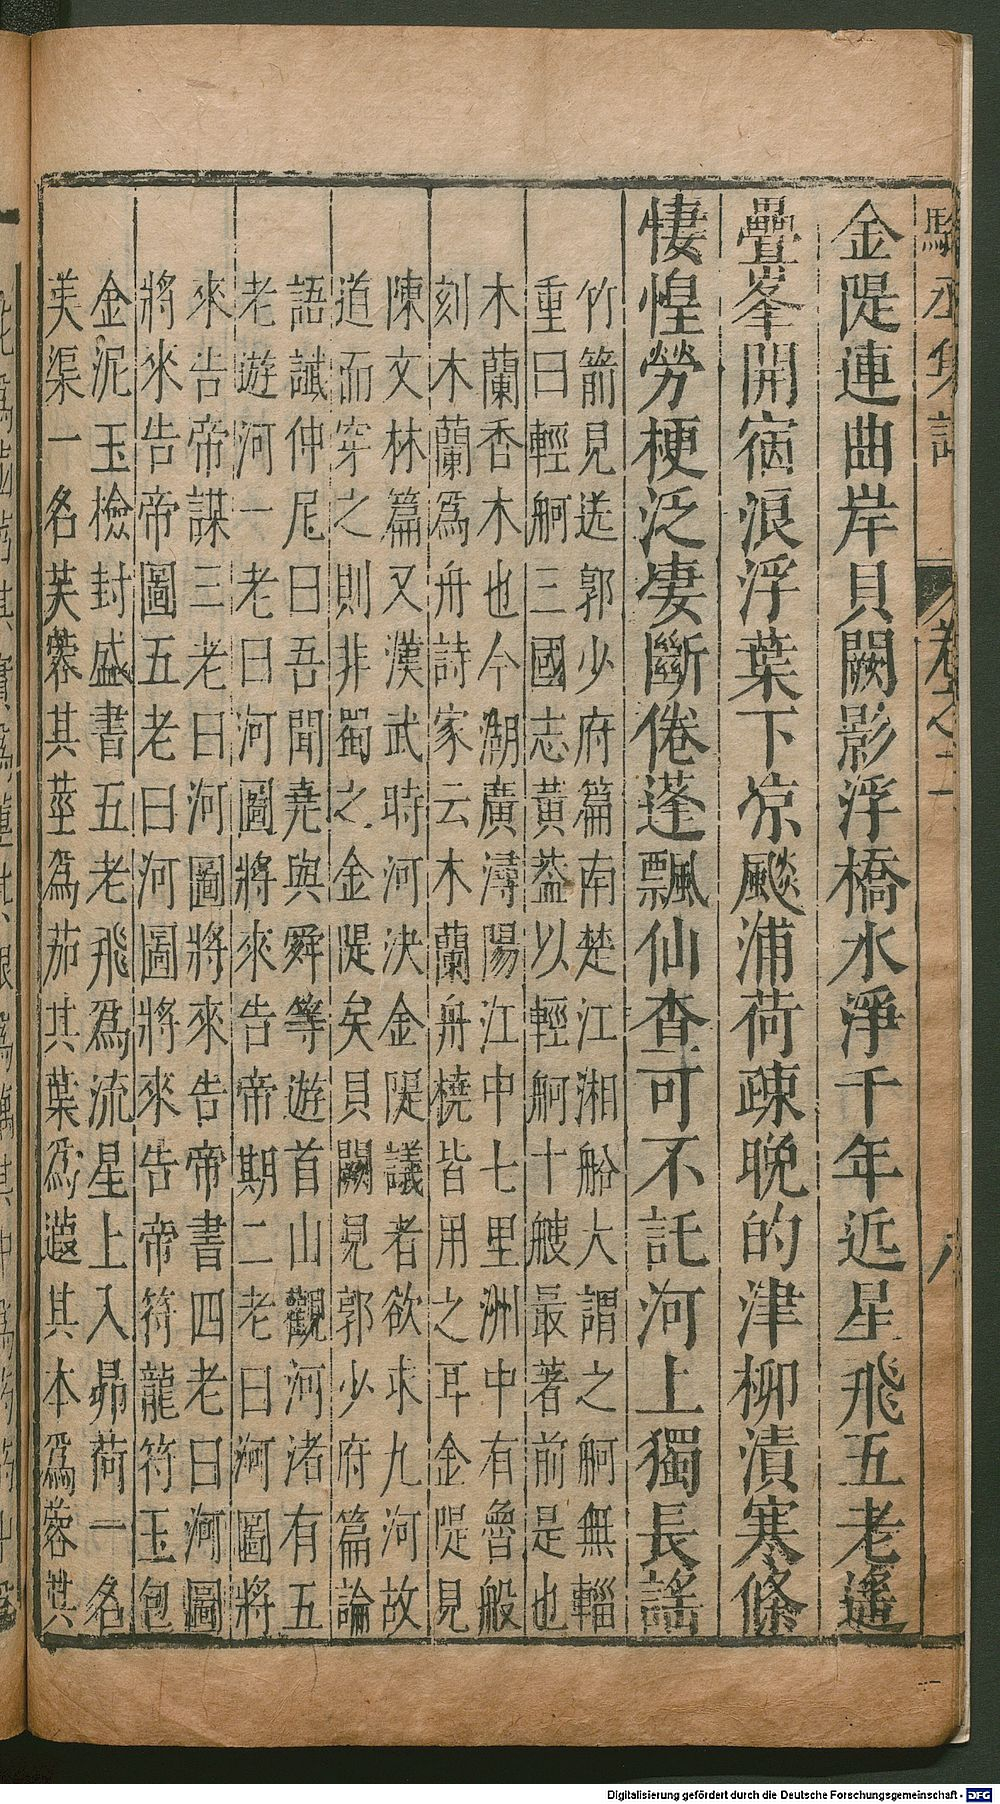 駱丞集註
卷之二
八
金隄連曲岸貝闕影浮橋水淨千年近星飛五老遙
疊峯開宿浪浮葉下凉飈浦荷疎晚的津柳漬寒條
悽惶勞梗泛凄斷倦蓬飄仙查可不託河上獨長謠
竹箭見送郭少府篇南楚江湘船大謂之舸無輜
重曰輕舸三國志黃葢以輕舸十艘最著前是也
木蘭香木也今湖廣潯陽江中七里洲中有魯般
刻木蘭爲舟詩家云木蘭舟橈皆用之耳金隄見
陳文林篇又漢武時河決金隄議者欲求九河故
道而穿之則非蜀之金隄矣貝闕見郭少府篇論
語讖仲尼曰吾聞堯與舜等遊首山觀河渚有五
老遊河一老曰河圖將來告帝期二老曰河圖將
來告帝謀三老曰河圖將來告帝書四老曰河圖
將來告帝圖五老曰河圖將來告帝符龍符玉包
金泥玉檢封盛書五老飛爲流星上入昴荷一名
芙渠一名芙蓉其莖爲茄其葉爲蕸其本爲蓉其
Digitalisierung gefördert durch die Deutsche Forschungsgemeinschaft - DFG